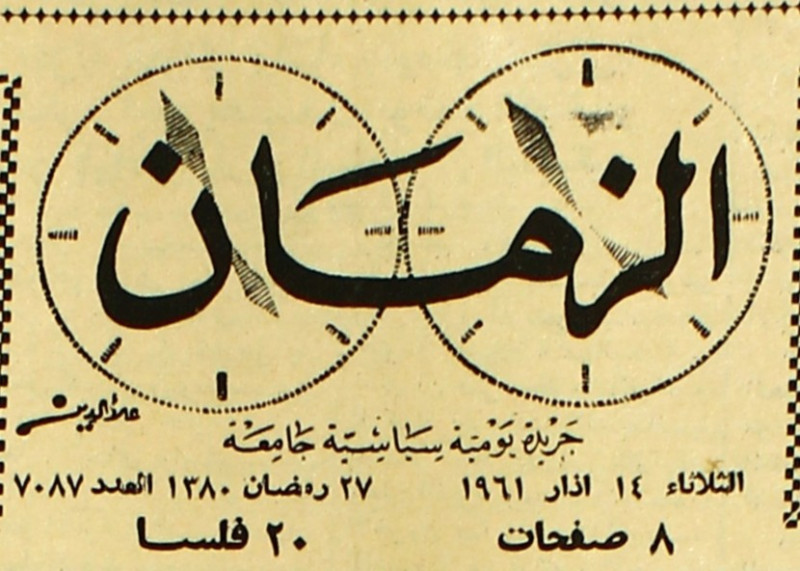 الزمان
علاء الدين
جَريدة يَوميّة سيَاسيّة جَامِعَة
الثلاثاء ١٤ اذار ١٩٦١ ٢٧ رمضان ١٣٨٠ العدد ٧٠٨٧
٨ صفحات ٢٠ فلسا